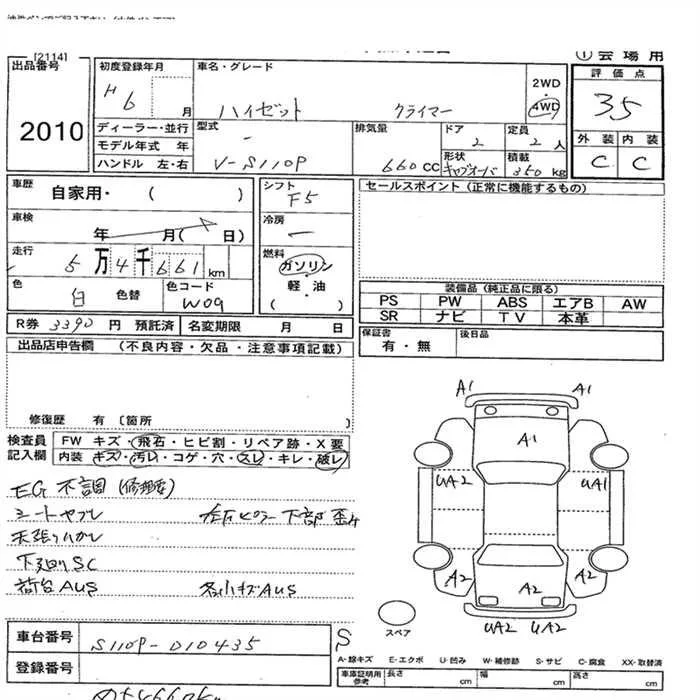 [2114]
①会場用
出品番号
2010
初度登録年月
H6 月
車名・グレード
ハイゼット クライマー
2WD
・
4WD
評価点
3.5
ディーラー・並行
モデル年式 年
ハンドル 左・右
型式
-
V-S110P
排気量
660 CC
ドア
2
定員
2 人
形状
キャブオーバ
積載
350 kg
外装 内装
C C
車歴
自家用・( )
車検
年 月( 日)
走行
5万4千661 km
色
白 色替
色コード
W09
シフト
F5
冷房
ー
燃料
ガソリン
・
軽・油
( )
セールスポイント (正常に機能するもの)
装備品 (純正品に限る)
PS PW ABS エアB AW
SR ナビ TV 本革
R券 3390 円 預託済
名変期限 月 日
保証書
有・無
後日品
出品店申告欄 (不良内容・欠品・注意事項記載)
修復歴 有 〔箇所 〕
検査員
記入欄
FW キズ・飛石・ヒビ割・リペア跡・X要
内装 キズ・汚レ・コゲ・穴・スレ・キレ・破レ
EG 不調 (修理要)
シートヤブレ
左右ピラー下部歪
天張りハガレ
下廻りSC
荷台AUS
各小キズAUS
A1 A1
A1
UA2 UA1
A2 A2 A2
UA2 UA2
スペア
車台番号
S110P-010435
登録番号
S
A-線キズ E-エクボ U-凹み W-補修跡 S-サビ C-腐食 XX-取替済
車庫証明用
参考
長さ cm
幅 cm
高さ cm